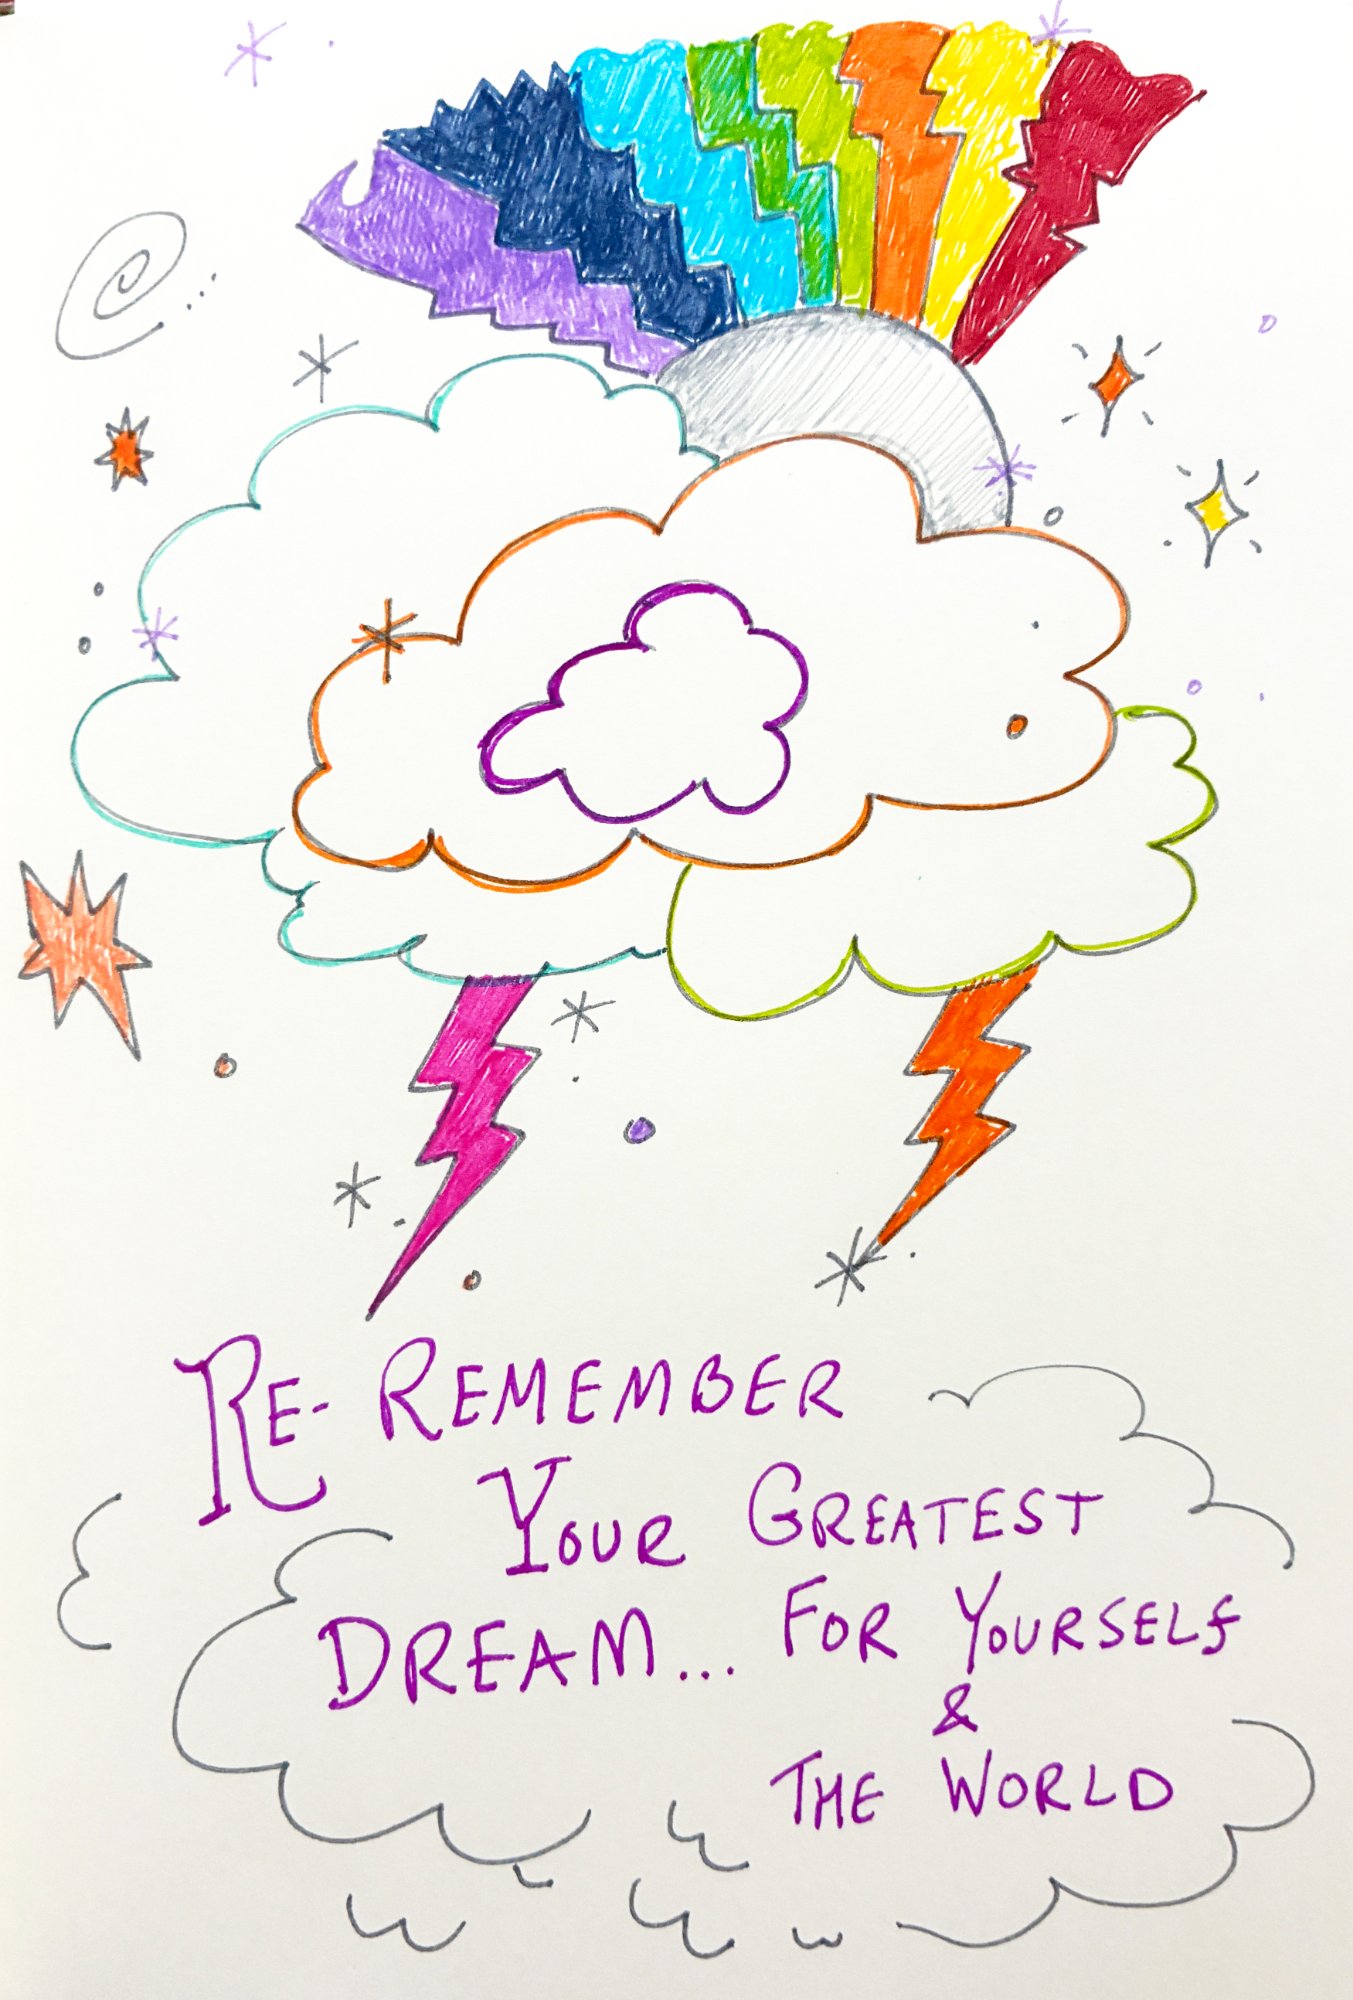 RE- REMEMBER
YOUR GREATEST
DREAM... FOR YOURSELF
&
THE WORLD